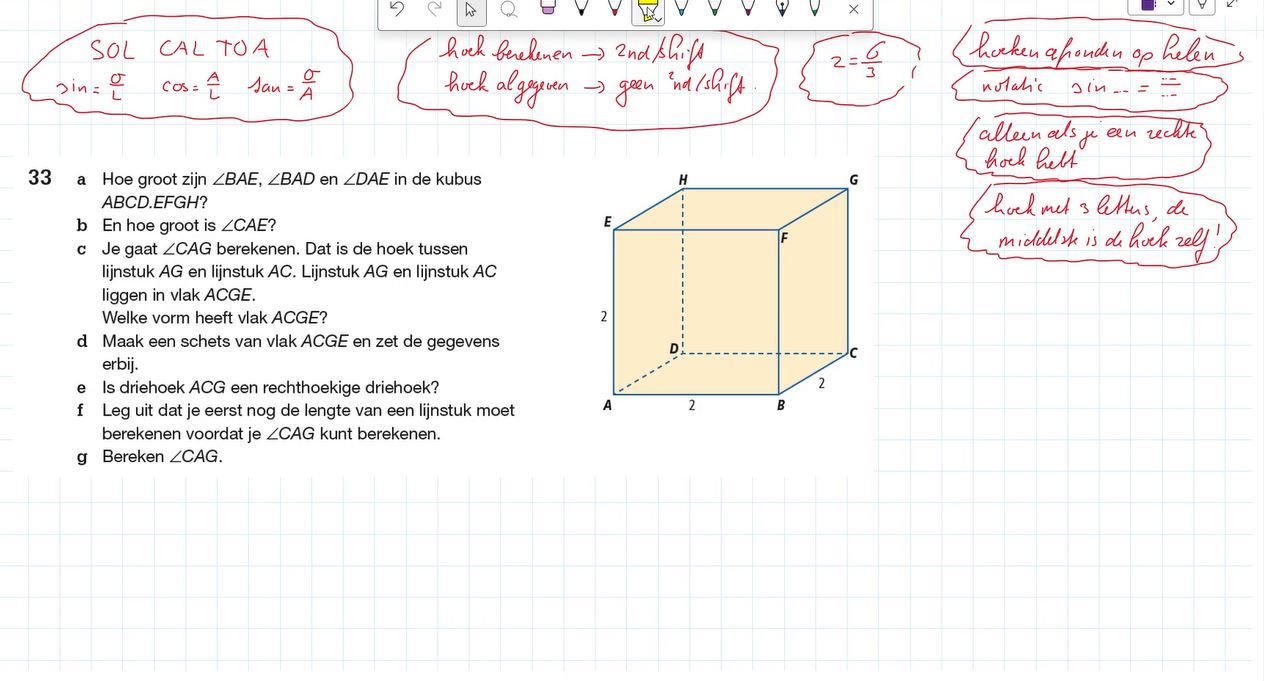 SOL CAL TOA
sin = O/L cos = A/L tan = O/A
hoek berekenen → 2nd/shift
hoek al gegeven → geen 2nd/shift.
2 = 6/3
hoeken afronden op helen
notatie sin ... = ...
alleen als je een rechte
hoek hebt
hoek met 3 letters, de
middelste is de hoek zelf!
33 a Hoe groot zijn ∠BAE, ∠BAD en ∠DAE in de kubus
ABCD.EFGH?
b En hoe groot is ∠CAE?
c Je gaat ∠CAG berekenen. Dat is de hoek tussen
lijnstuk AG en lijnstuk AC. Lijnstuk AG en lijnstuk AC
liggen in vlak ACGE.
Welke vorm heeft vlak ACGE?
d Maak een schets van vlak ACGE en zet de gegevens
erbij.
e Is driehoek ACG een rechthoekige driehoek?
f Leg uit dat je eerst nog de lengte van een lijnstuk moet
berekenen voordat je ∠CAG kunt berekenen.
g Bereken ∠CAG.
H G
E
F
2
D C
2
A 2 B